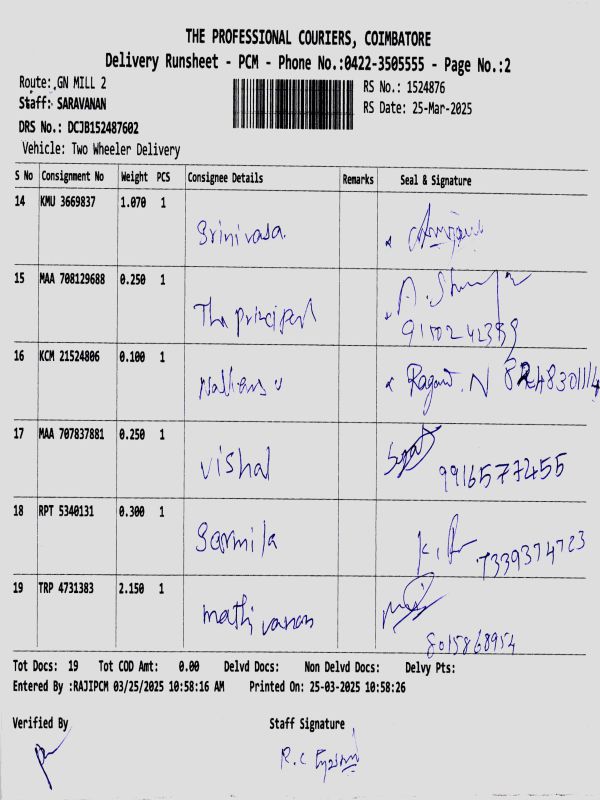 THE PROFESSIONAL COURIERS, COIMBATORE
Delivery Runsheet - PCM - Phone No.:0422-3505555 - Page No.:2
Route: GN MILL 2
RS No.: 1524876
Staff: SARAVANAN
RS Date: 25-Mar-2025
DRS No.: DCJB152487602
Vehicle: Two Wheeler Delivery
S No Consignment No Weight PCS Consignee Details Remarks Seal & Signature
14 KMU 3669837 1.070 1
Srinivasa
15 MAA 708129688 0.250 1
The principal
16 KCM 21524806 0.100 1
17 MAA 707837881 0.250 1
Vishal
9916577455
18 RPT 5340131 0.300 1
Sarmila
7339374723
19 TRP 4731383 2.150 1
mathivanan
8015868954
Tot Docs: 19 Tot COD Amt: 0.00 Delvd Docs: Non Delvd Docs: Delvy Pts:
Entered By :RAJIPCM 03/25/2025 10:58:16 AM Printed On: 25-03-2025 10:58:26
Verified By Staff Signature